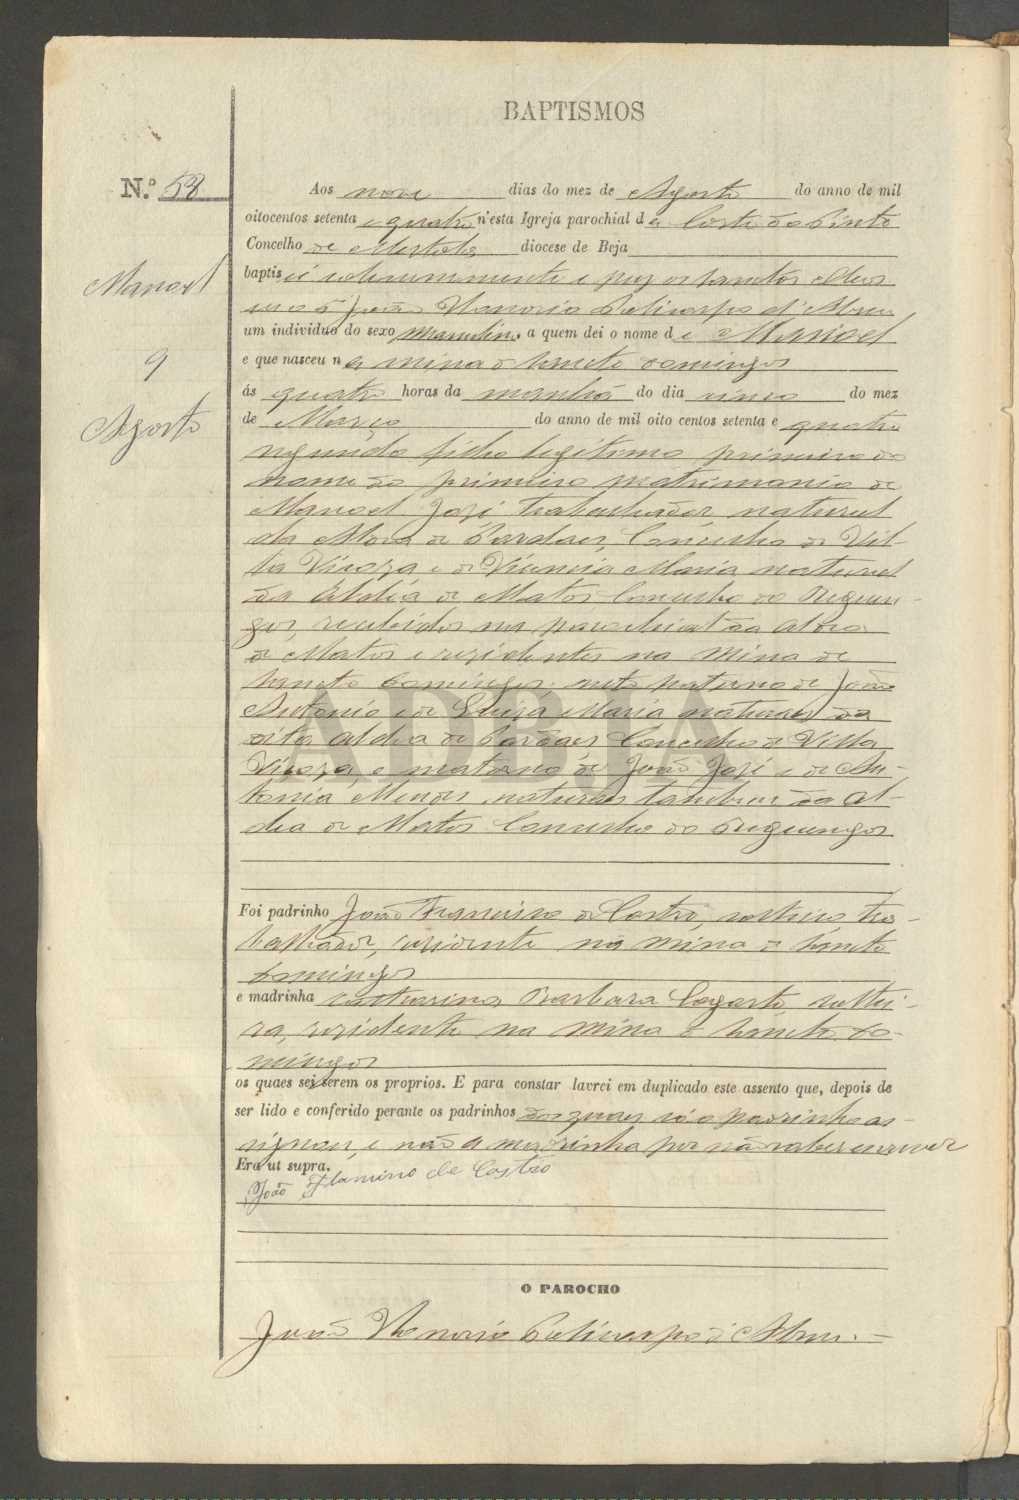 BAPTISMOS
N.º 58
Aos nove dias do mez de Agosto do anno de mil
oitocentos setenta e quatro n'esta Igreja parochial da Corte do Pinto
Concelho de Mertola diocese de Beja
baptisei solemnemente e puz os Sanctos Oleos
João Honorio Policarpo d'Abreu
um individuo do sexo masculino, a quem dei o nome de Manoel
e que nasceu na mina de Sancto Domingos
ás quatro horas da manhã do dia cinco do mez
de Março do anno de mil oito centos setenta e quatro
Manoel
9
Agosto
segundo filho legitimo primeiro do
nome do primeiro matrimonio de
Manoel José trabalhador natural
da de Pardaes, Concelho de Vil-
la Viçoza e de Vicencia Maria natural
da Aldêa de Mattos Concelho de Reguen-
gos, recebidos na parochial da Aldea
de Mattos e rezidentes na Mina de
Sancto Domingos: neto paterno de João
Antonio e de Luiza Maria naturaes da
dita aldea de Pardaes, Concelho de Villa
Viçoza, e materno de João José e de An-
tonia Mendes, naturaes tambem da Al-
dea de Mattos Concelho de Reguengos
Foi padrinho João Framino de Castro, solteiro tra-
balhador, rezidente na mina de Sancto
Domingos
e madrinha Catharina Barbara Lagarto, soltei-
ra, rezidente na mina de Sancto Do-
mingos
os quaes sei serem os proprios. E para constar lavrei em duplicado este assento que, depois de
ser lido e conferido perante os padrinhos dos quaes só o padrinho as-
signou, e não a madrinha por não saber escrever
Era ut supra.
João Flamino de Castro
O PAROCHO
João Honorio Policarpo d'Abreu.
ADBJA